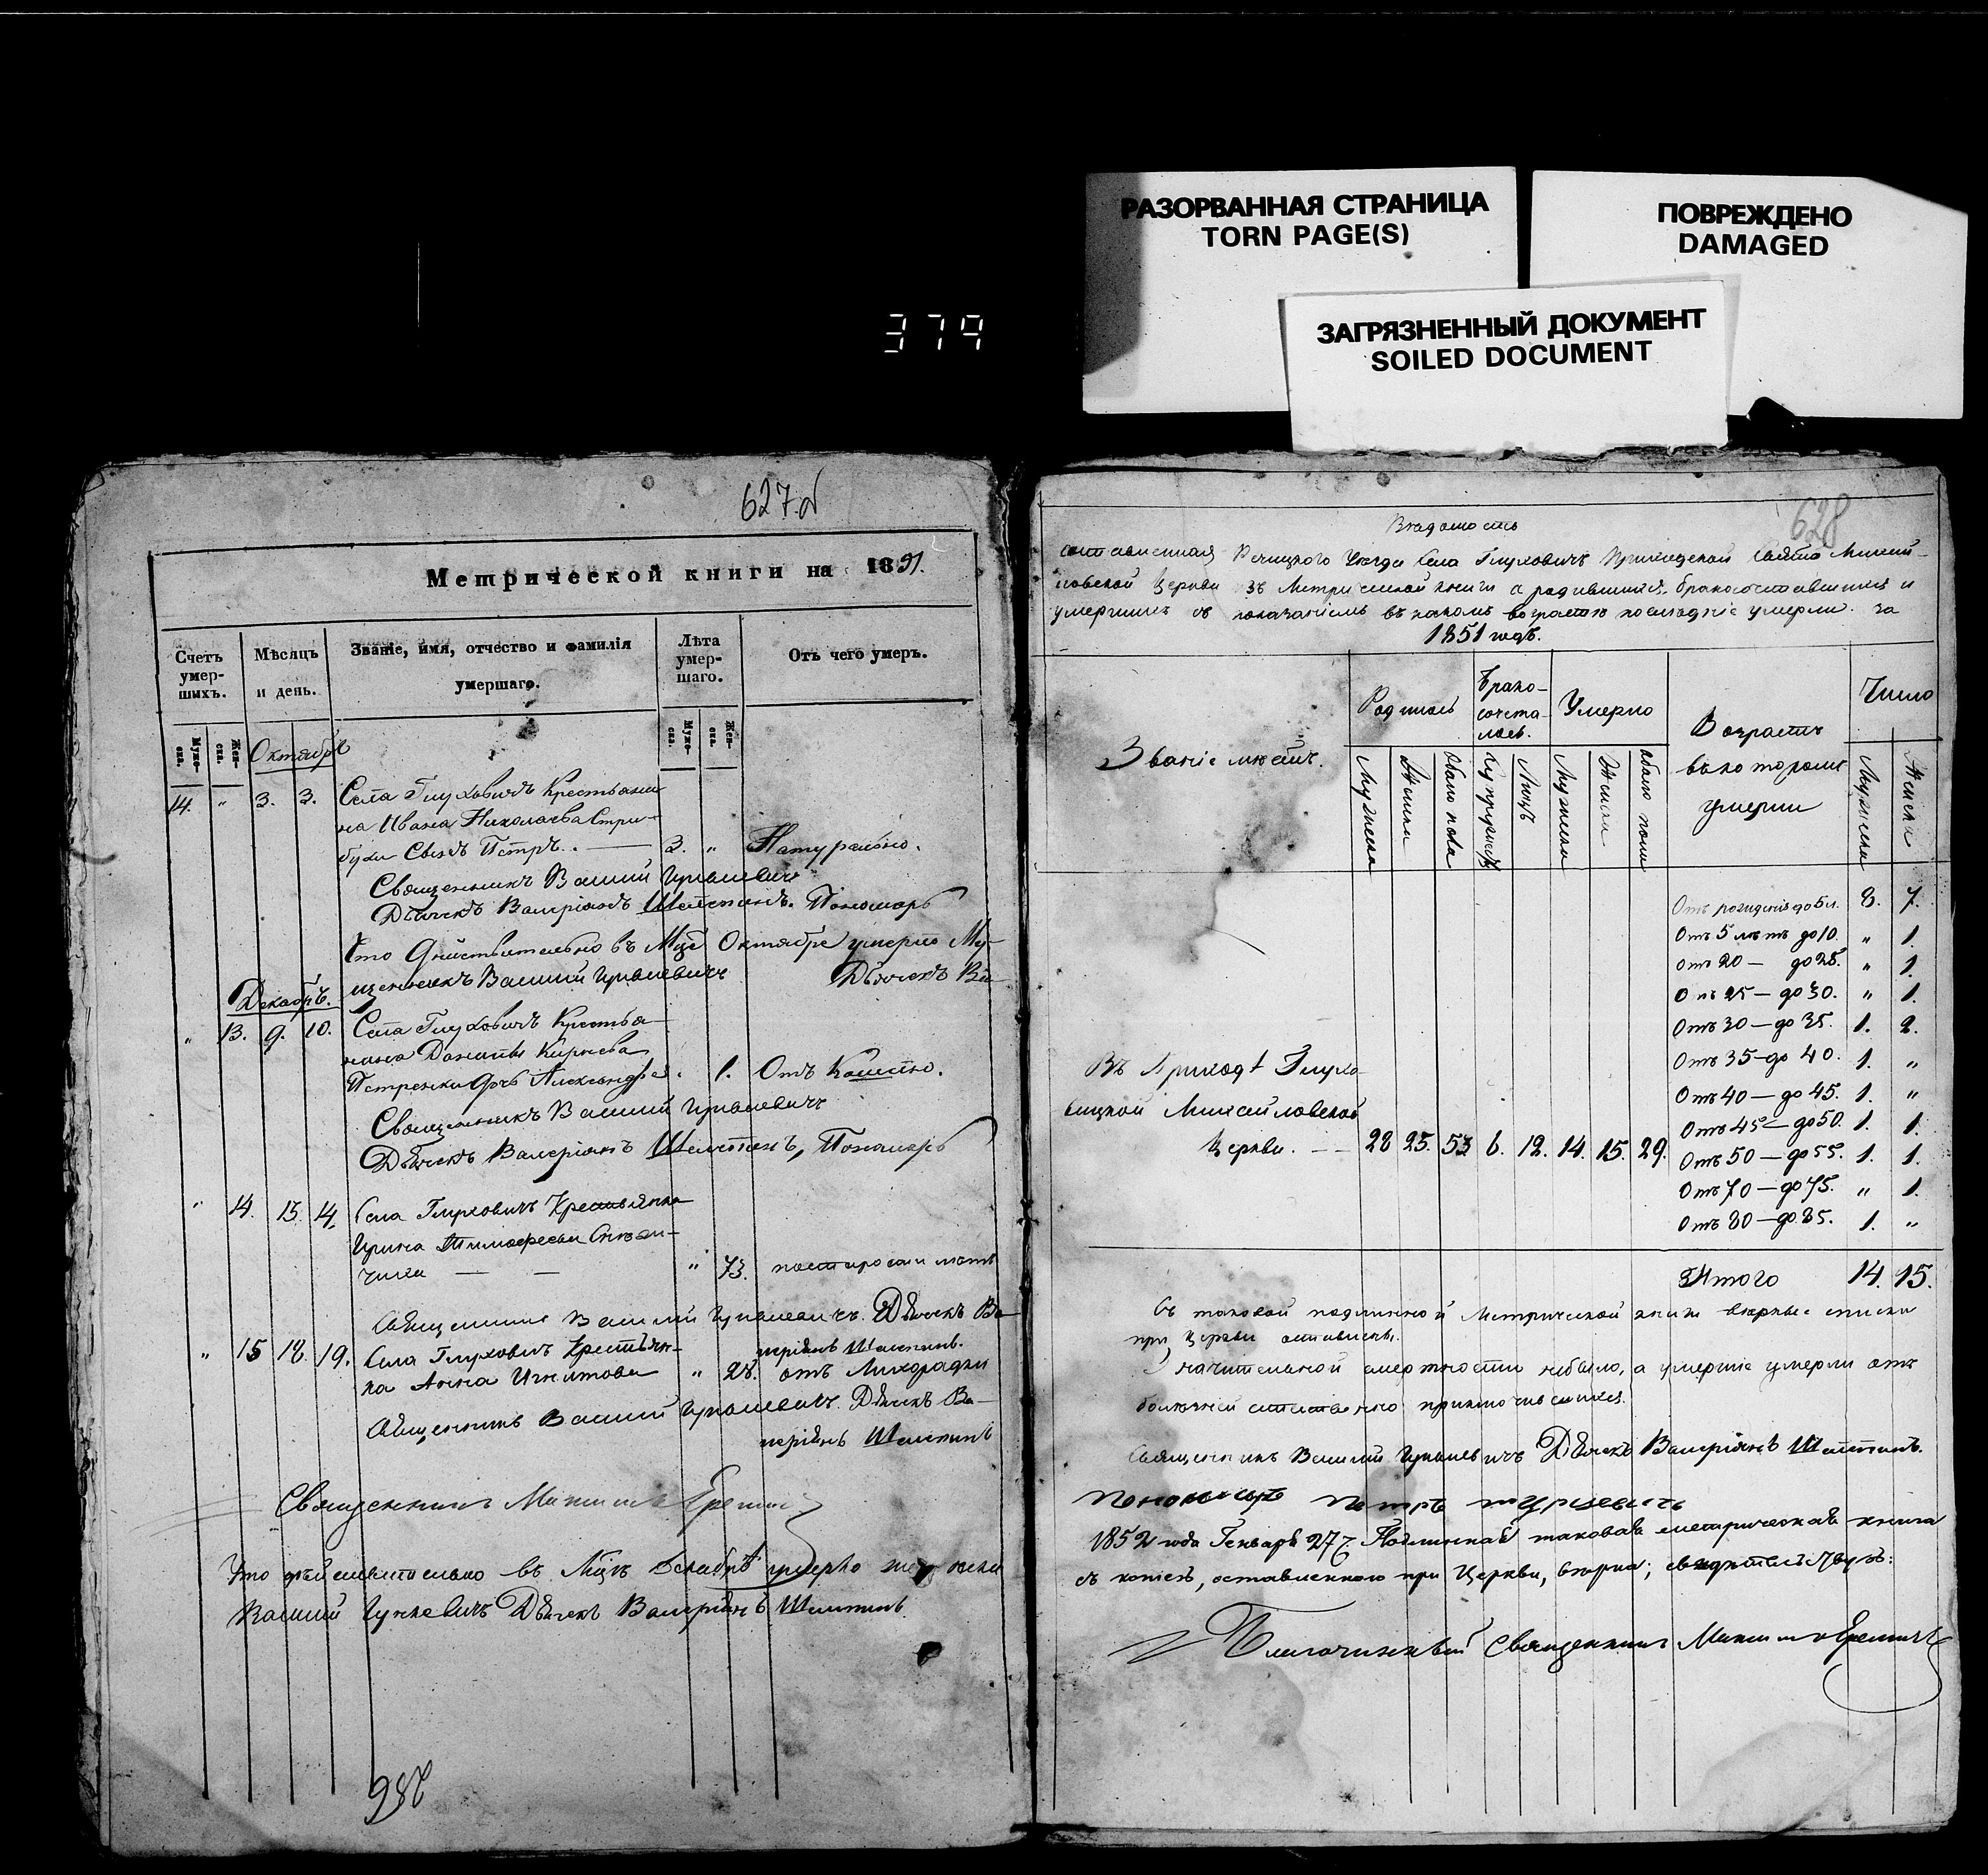 РАЗОРВАННАЯ СТРАНИЦА
TORN PAGE(S)
ПОВРЕЖДЕНО
DAMAGED
ЗАГРЯЗНЕННЫЙ ДОКУМЕНТ
SOILED DOCUMENT
379
627.
Метрической книги на 1851.
Счетъ умер-шихъ.
Мѣсяцъ и день.
Званіе, имя, отчество и фамилія умершаго.
Лѣта умер-шаго.
Отъ чего умеръ.
Муже-ска.
Жен-ска.
Муже-ска.
Жен-ска.
Октябрь
14. " 3. 3. Села Глуховичъ Крестьяни-
на Ивана Николаева Стри-
бухи Сынъ Петръ. — 3. " Натурально.
Священникъ Василий
Дьячекъ Валеріанъ Шелепинъ. Пономарь
Что действительно въ Мцѣ Октябре умерло
щенникъ Василий Дьячекъ Ва-
Декабрь.
" 13. 9. 10. Села Глуховичъ Крестья-
нина Данилы Кирѣева
Петренки дочь Александра. 1. Отъ Кашлю.
Священникъ Василий
Дьячекъ Валеріанъ Шелепинъ, Пономарь
" 14. 13. 14. Села Глуховичъ Крестьянка
Ирина Тимофеева
— — " 73. по старости лѣтъ
Священникъ Василий Дьячекъ Ва-
леріанъ Шелепинъ.
" 15 18. 19. Села Глуховичъ Крестьян-
ка Анна Игнатова " 28. отъ Лихорадки
Священникъ Василий Дьячекъ Ва-
леріанъ Шелепинъ
Священникъ Максимъ Еремичъ
Что действительно въ Мцѣ Декабрѣ умерло
Василий Дьячекъ Валеріанъ Шелепинъ
628
Вѣдомость
составленная Речицкого Уезда Села Глуховичъ Приходской Свято Михай-
ловской Церкви въ Метрической книги о родившихся, бракосочетавшихся и
умершихъ съ показаніемъ въ какомъ возрасте последніе умерли. за
1851 годъ.
Званіе мѣстъ.
Родилось
Брако-
сочета-
лось.
Умерло
Возрастъ
въ которомъ
умерли
Число
Мужеска
Женска
Обоего пола
Супружествъ
Лицъ
Мужеска
Женска
Обоего пола
Мужеска
Женска
Отъ рожденія до 5 л. 8. 7.
Отъ 5 летъ до 10. " 1.
Отъ 20 — до 25. " 1.
Отъ 25 — до 30. " 1.
Отъ 30 — до 35. 1. 2.
Отъ 35 — до 40. 1. "
Отъ 40 — до 45. 1. "
Отъ 45 — до 50. 1. 1.
Отъ 50 — до 55. 1. 1.
Отъ 70 — до 75. " 1.
Отъ 80 — до 85. 1. "
Въ Приходѣ Глухо-
вицкой Михайловской
Церкви. — — 28 25. 53 6. 12. 14. 15. 29.
Итого 14. 15.
Съ таковой подлинной Метрической книги верные списки
при Церкви оставлены.
Значительной смертности небыло, а умершіе умерли отъ
болезней естественно приключившихся.
Священникъ Василий Дьячекъ Валеріанъ Шелепинъ.
Пономарь Петръ
1852 года Генваря 27. Подлинная таковая метрическая книга
съ копіею, оставленною при Церкви, верна; свидѣтельствую:
Благочинный Священникъ Максимъ Еремичъ